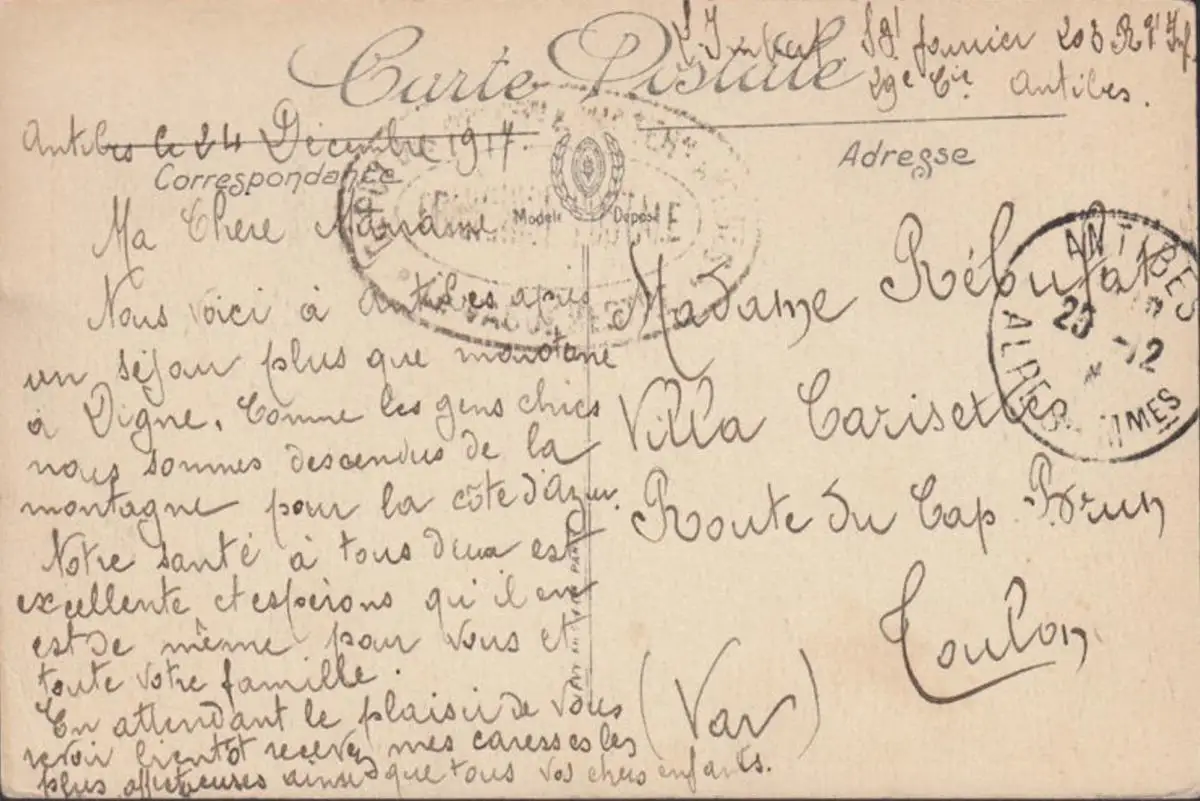 Carte Postale
Sgt fourrier 203 Rgt Inf.
29e Cie Antibes.
Antibes le 24 Décembre 1917.
Correspondance
Adresse
Modèle Déposé
Ma Chère Madame
Nous voici à Antibes après
un séjour plus que monotone
à Digne. Comme les gens chics
nous sommes descendus de la
montagne pour la côte d'Azur.
Notre santé à tous deux est
excellente et espérons qu'il en
est de même pour vous et
toute votre famille.
En attendant le plaisir de vous
revoir bientôt recevez mes caresses les
plus affectueuses ainsi que tous vos chers enfants.
Madame Rébufat
Villa
Route du Cap Brun
Toulon
(Var)
ANTIBES
25 -12
ALPES MMES